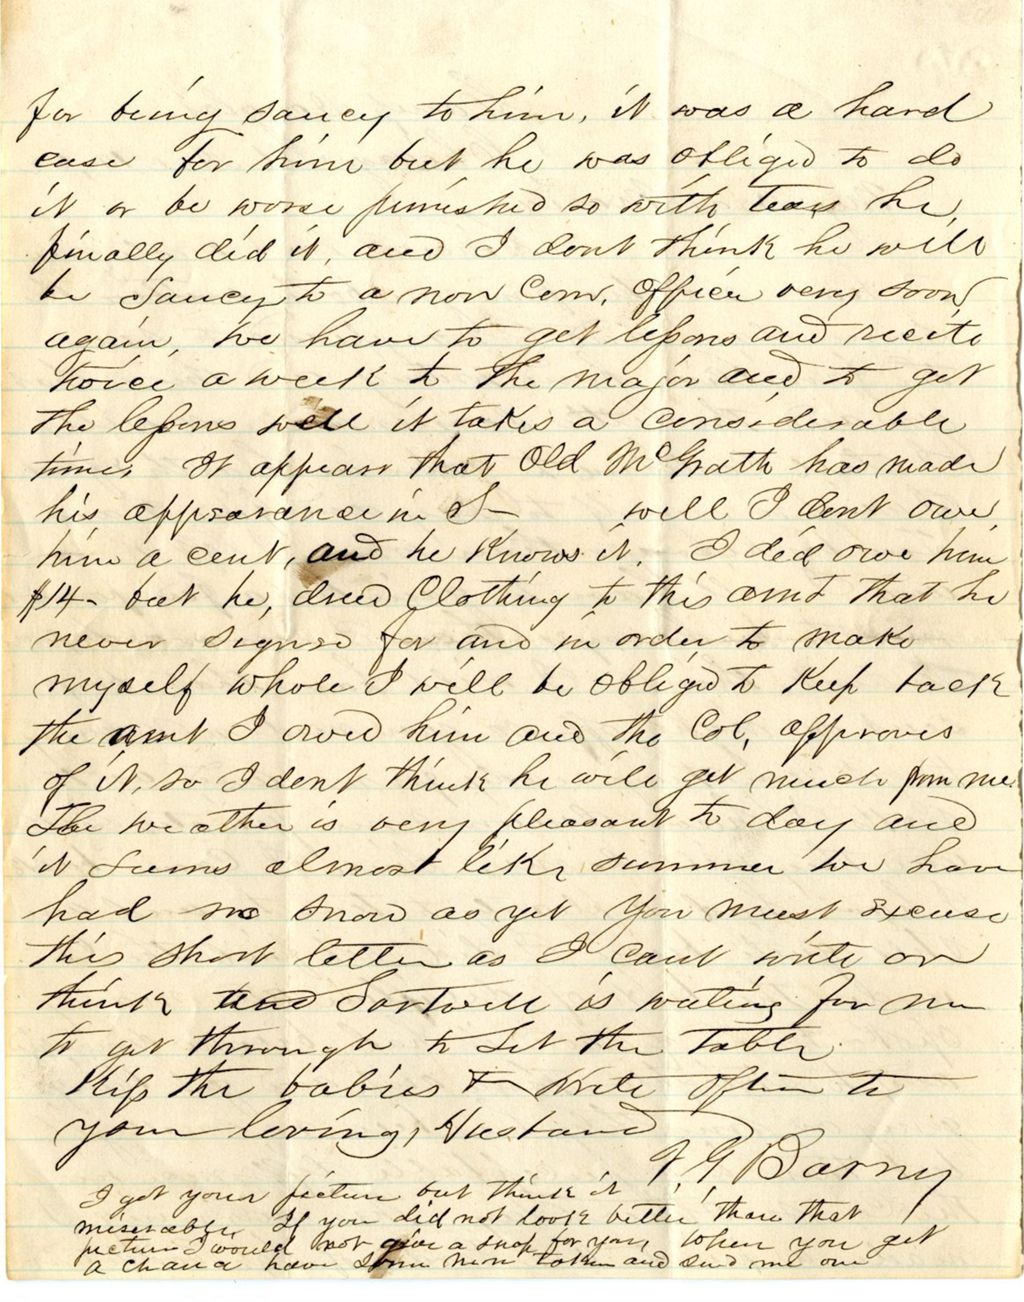 for being saucy to him, it was a hard
case for him but he was obliged to do
it or be worse punished so with tears he
finally did it, and I dont think he will
be Saucy to a non Com. Officer very soon
again, We have to get lessons and recite
twice a week to the major and to get
the lessons well it takes a considerable
time. It appears that Old McGrath has made
his appearance in S— well I dont owe
him a cent, and he knows it. I did owe him
$14- but he, drew Clothing to this amt that he
never signed for and in order to make
myself whole I will be obliged to keep back
the amt I owed him and the Col, approves
of it, so I dont think he will get much from me
The weather is very pleasant to day and
it seems almost like summer we have
had no snow as yet You must excuse
this short letter as I cant write or
think and Sartwell is waiting for me
to get through to Set the Table
Kiss the babies & Write Often to
your loving, Husband
V. G. Barney
I got your picture but think it
miserable. If you did not look better than that
picture I would not give a snap for you, When you get
a chance have some new taken and send me one